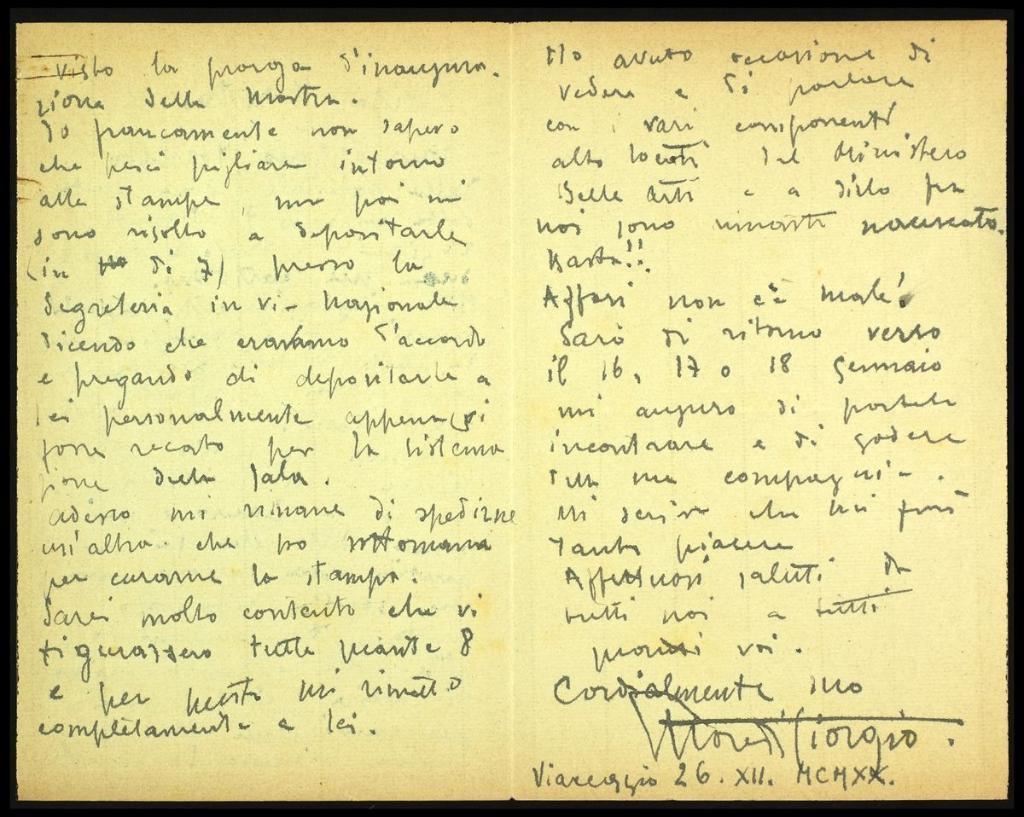 visto la proroga d'inaugura-
zione della mostra.
Io francamente non sapevo
che pesci pigliare intorno
alle stampe, ma poi mi
sono risolto a depositarle
(in di 7) presso la
Segreteria in via Nazionale
dicendo che eravamo d'accordo
e pregando di depositarle a
lei personalmente appena si
fosse recato per la sistema
zione della sala.
adesso mi rimane di spedirne
un'altra che ho sottomano
per curarne la stampa.
Sarei molto contento che vi
figurassero tutte quante 8
e per questo mi rimetto
completamente a lei.
Ho avuto occasione di
vedere e di parlare
con i vari componenti
alto locati del Ministero
Belle Arti e a dirlo fra
noi sono rimasto nauseato.
Basta!!
Affari non c'è male!
Sarò di ritorno verso
il 16, 17 o 18 Gennaio
mi auguro di poterla
incontrare e di godere
della sua compagnia.
Mi scriva che mi farà
tanto piacere
Affettuosi saluti da
tutti noi a tutti
voi.
Cordialmente suo
Giorgio.
Viareggio 26. XII. MCMXX.